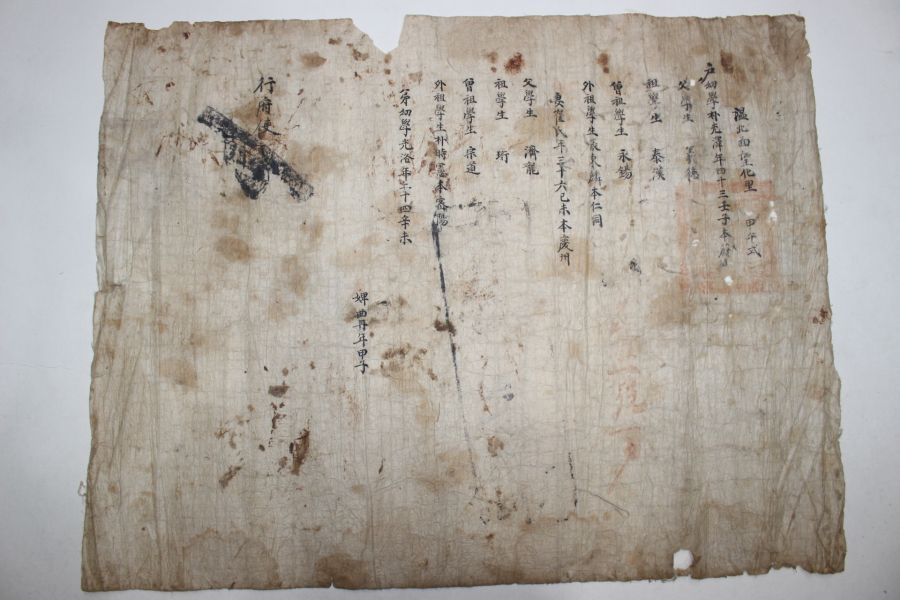 溫北面聖化里 甲午式
戶幼學朴光澤年四十三壬子本
父學生 義德
祖學生 泰漢
曾祖學生 永錫
外祖學生 東 本仁同
妻崔氏年三十六己未本慶州
父學生 濟龍
祖學生 珩
曾祖學生 宗道
外祖學生朴時 本密陽
弟幼學光浴年二十四辛未
婢 丹年甲子
行府使